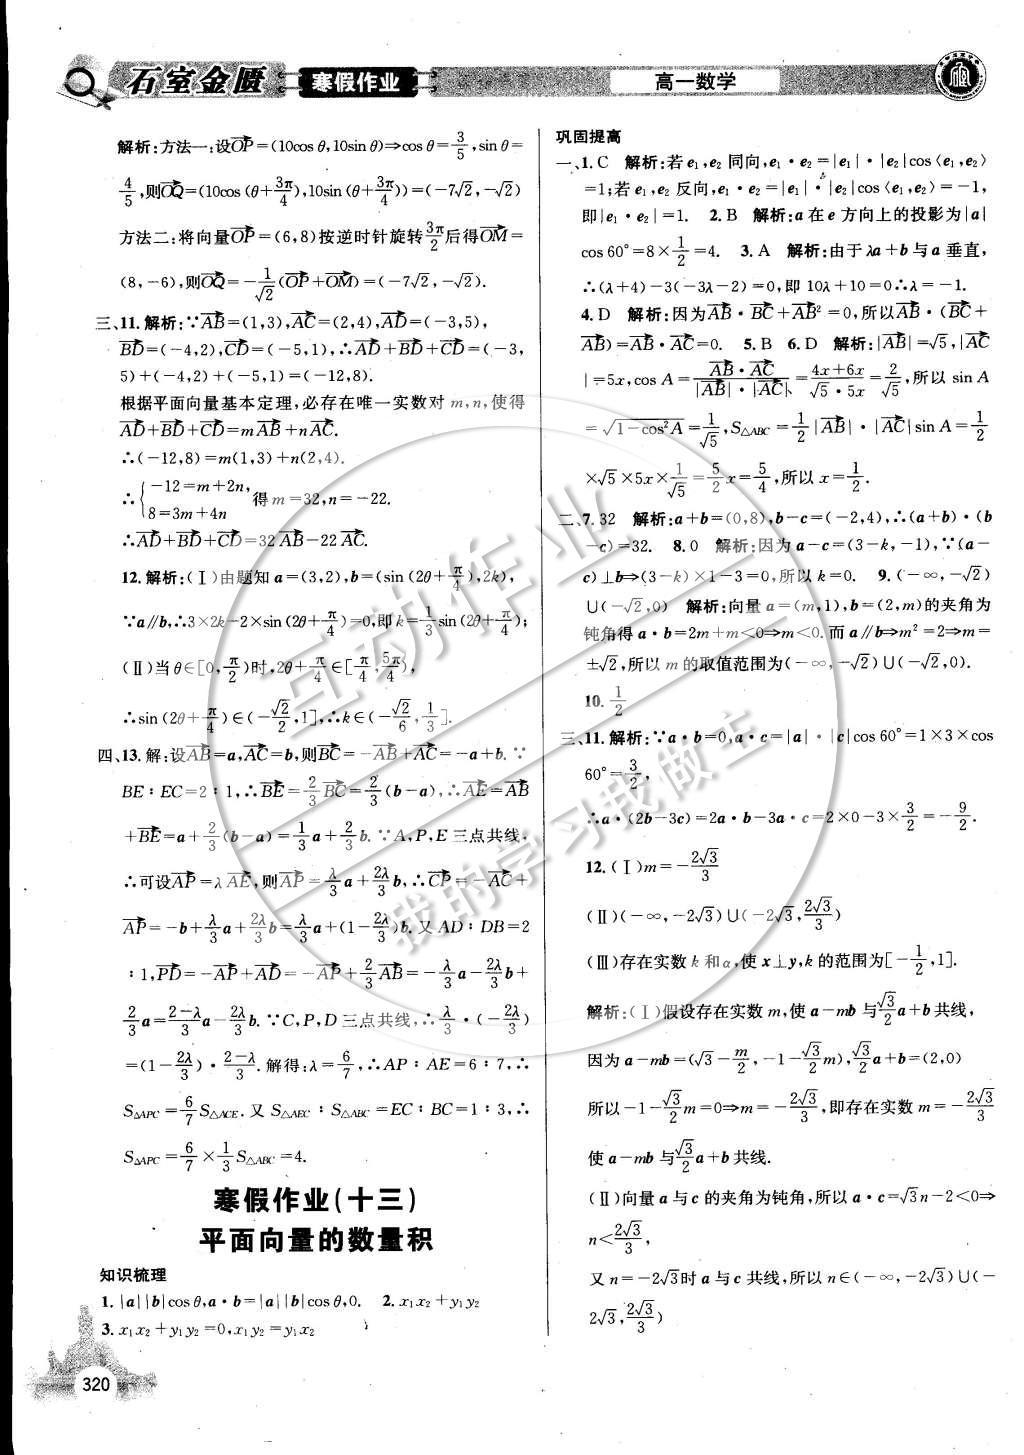 石室金匮 寒假作业 高一数学
解析:方法一:设OP=(10cos θ,10sin θ)⇒cos θ=3/5,sin θ=
4/5,则OQ=(10cos(θ+3π/4),10sin(θ+3π/4))=(-7√2,-√2)
方法二:将向量OP=(6,8)按逆时针旋转3π/2后得OM=
(8,-6),则OQ=-1/√2(OP+OM)=(-7√2,-√2).
三、11.解析:∵AB=(1,3),AC=(2,4),AD=(-3,5),
BD=(-4,2),CD=(-5,1),∴AD+BD+CD=(-3,
5)+(-4,2)+(-5,1)=(-12,8).
根据平面向量基本定理,必存在唯一实数对 m,n,使得
AD+BD+CD=mAB+nAC.
∴(-12,8)=m(1,3)+n(2,4).
∴{-12=m+2n, 8=3m+4n 得 m=32,n=-22.
∴AD+BD+CD=32AB-22AC.
12.解析:(Ⅰ)由题知 a=(3,2),b=(sin(2θ+π/4),2k),
∵a∥b,∴3×2k-2×sin(2θ+π/4)=0,即k=1/3sin(2θ+π/4);
(Ⅱ)当θ∈[0,π/2)时,2θ+π/4∈[π/4,5π/4),
∴sin(2θ+π/4)∈(-√2/2,1],∴k∈(-√2/6,1/3].
四、13.解:设AB=a,AC=b,则BC=-AB+AC=-a+b.∵
BE∶EC=2∶1,∴BE=2/3BC=2/3(b-a),∴AE=AB
+BE=a+2/3(b-a)=1/3a+2/3b.∵A,P,E三点共线,
∴可设AP=λAE,则AP=λ/3a+2λ/3b,∴CP=-AC+
AP=-b+λ/3a+2λ/3b=λ/3a+(1-2λ/3)b.又AD∶DB=2
∶1,PD=-AP+AD=-AP+2/3AB=-λ/3a-2λ/3b+
2/3a=2-λ/3a-2λ/3b.∵C,P,D三点共线,∴λ/3·(-2λ/3)
=(1-2λ/3)·2-λ/3.解得:λ=6/7,∴AP∶AE=6∶7,∴
S△APC=6/7S△ACE.又S△AEC∶S△ABC=EC∶BC=1∶3,∴
S△APC=6/7×1/3S△ABC=4.
寒假作业(十三)
平面向量的数量积
知识梳理
1.|a||b|cos θ,a·b=|a||b|cos θ,0. 2.x₁x₂+y₁y₂
3.x₁x₂+y₁y₂=0,x₁y₂=y₁x₂
320
巩固提高
一、1.C 解析:若e₁,e₂同向,e₁·e₂=|e₁|·|e₂|cos⟨e₁,e₂⟩
=1;若e₁,e₂反向,e₁·e₂=|e₁|·|e₂|cos⟨e₁,e₂⟩=-1,
即|e₁·e₂|=1. 2.B 解析:a在e方向上的投影为|a|
cos60°=8×1/2=4. 3.A 解析:由于λa+b与a垂直,
∴(λ+4)-3(-3λ-2)=0,即10λ+10=0∴λ=-1.
4.D 解析:因为AB·BC+AB²=0,所以AB·(BC+
AB)=AB·AC=0. 5.B 6.D 解析:|AB|=√5,|AC
|=5x,cos A=AB·AC/|AB|·|AC|=4x+6x/√5·5x=2/√5,所以 sin A
=√1-cos²A=1/√5,S△ABC=1/2|AB|·|AC|sin A=1/2
×√5×5x×1/√5=5/2x=5/4,所以x=1/2.
二、7.32 解析:a+b=(0,8),b-c=(-2,4),∴(a+b)·(b
-c)=32. 8.0 解析:因为a-c=(3-k,-1),∵(a-
c)⊥b⇒(3-k)×1-3=0,所以k=0. 9.(-∞,-√2)
∪(-√2,0) 解析:向量a=(m,1),b=(2,m)的夹角为
钝角得a·b=2m+m<0⇒m<0.而a∥b⇒m²=2⇒m=
±√2,所以m的取值范围为(-∞,-√2)∪(-√2,0).
10.1/2
三、11.解析:∵a·b=0,a·c=|a|·|c|cos60°=1×3×cos
60°=3/2,
∴a·(2b-3c)=2a·b-3a·c=2×0-3×3/2=-9/2.
12.(Ⅰ)m=-2√3/3
(Ⅱ)(-∞,-2√3)∪(-2√3,2√3/3)
(Ⅲ)存在实数k和α,使x⊥y,k的范围为[-1/2,1].
解析:(Ⅰ)假设存在实数m,使a-mb与√3/2a+b共线,
因为a-mb=(√3-m/2,-1-√3/2m),√3/2a+b=(2,0)
所以-1-√3/2m=0⇒m=-2√3/3,即存在实数m=-2√3/3
使a-mb与√3/2a+b共线.
(Ⅱ)向量a与c的夹角为钝角,所以a·c=√3n-2<0⇒
n<2√3/3,
又n=-2√3时a与c共线,所以n∈(-∞,-2√3)∪(-
2√3,2√3/3)
互动作业
我的学习我做主